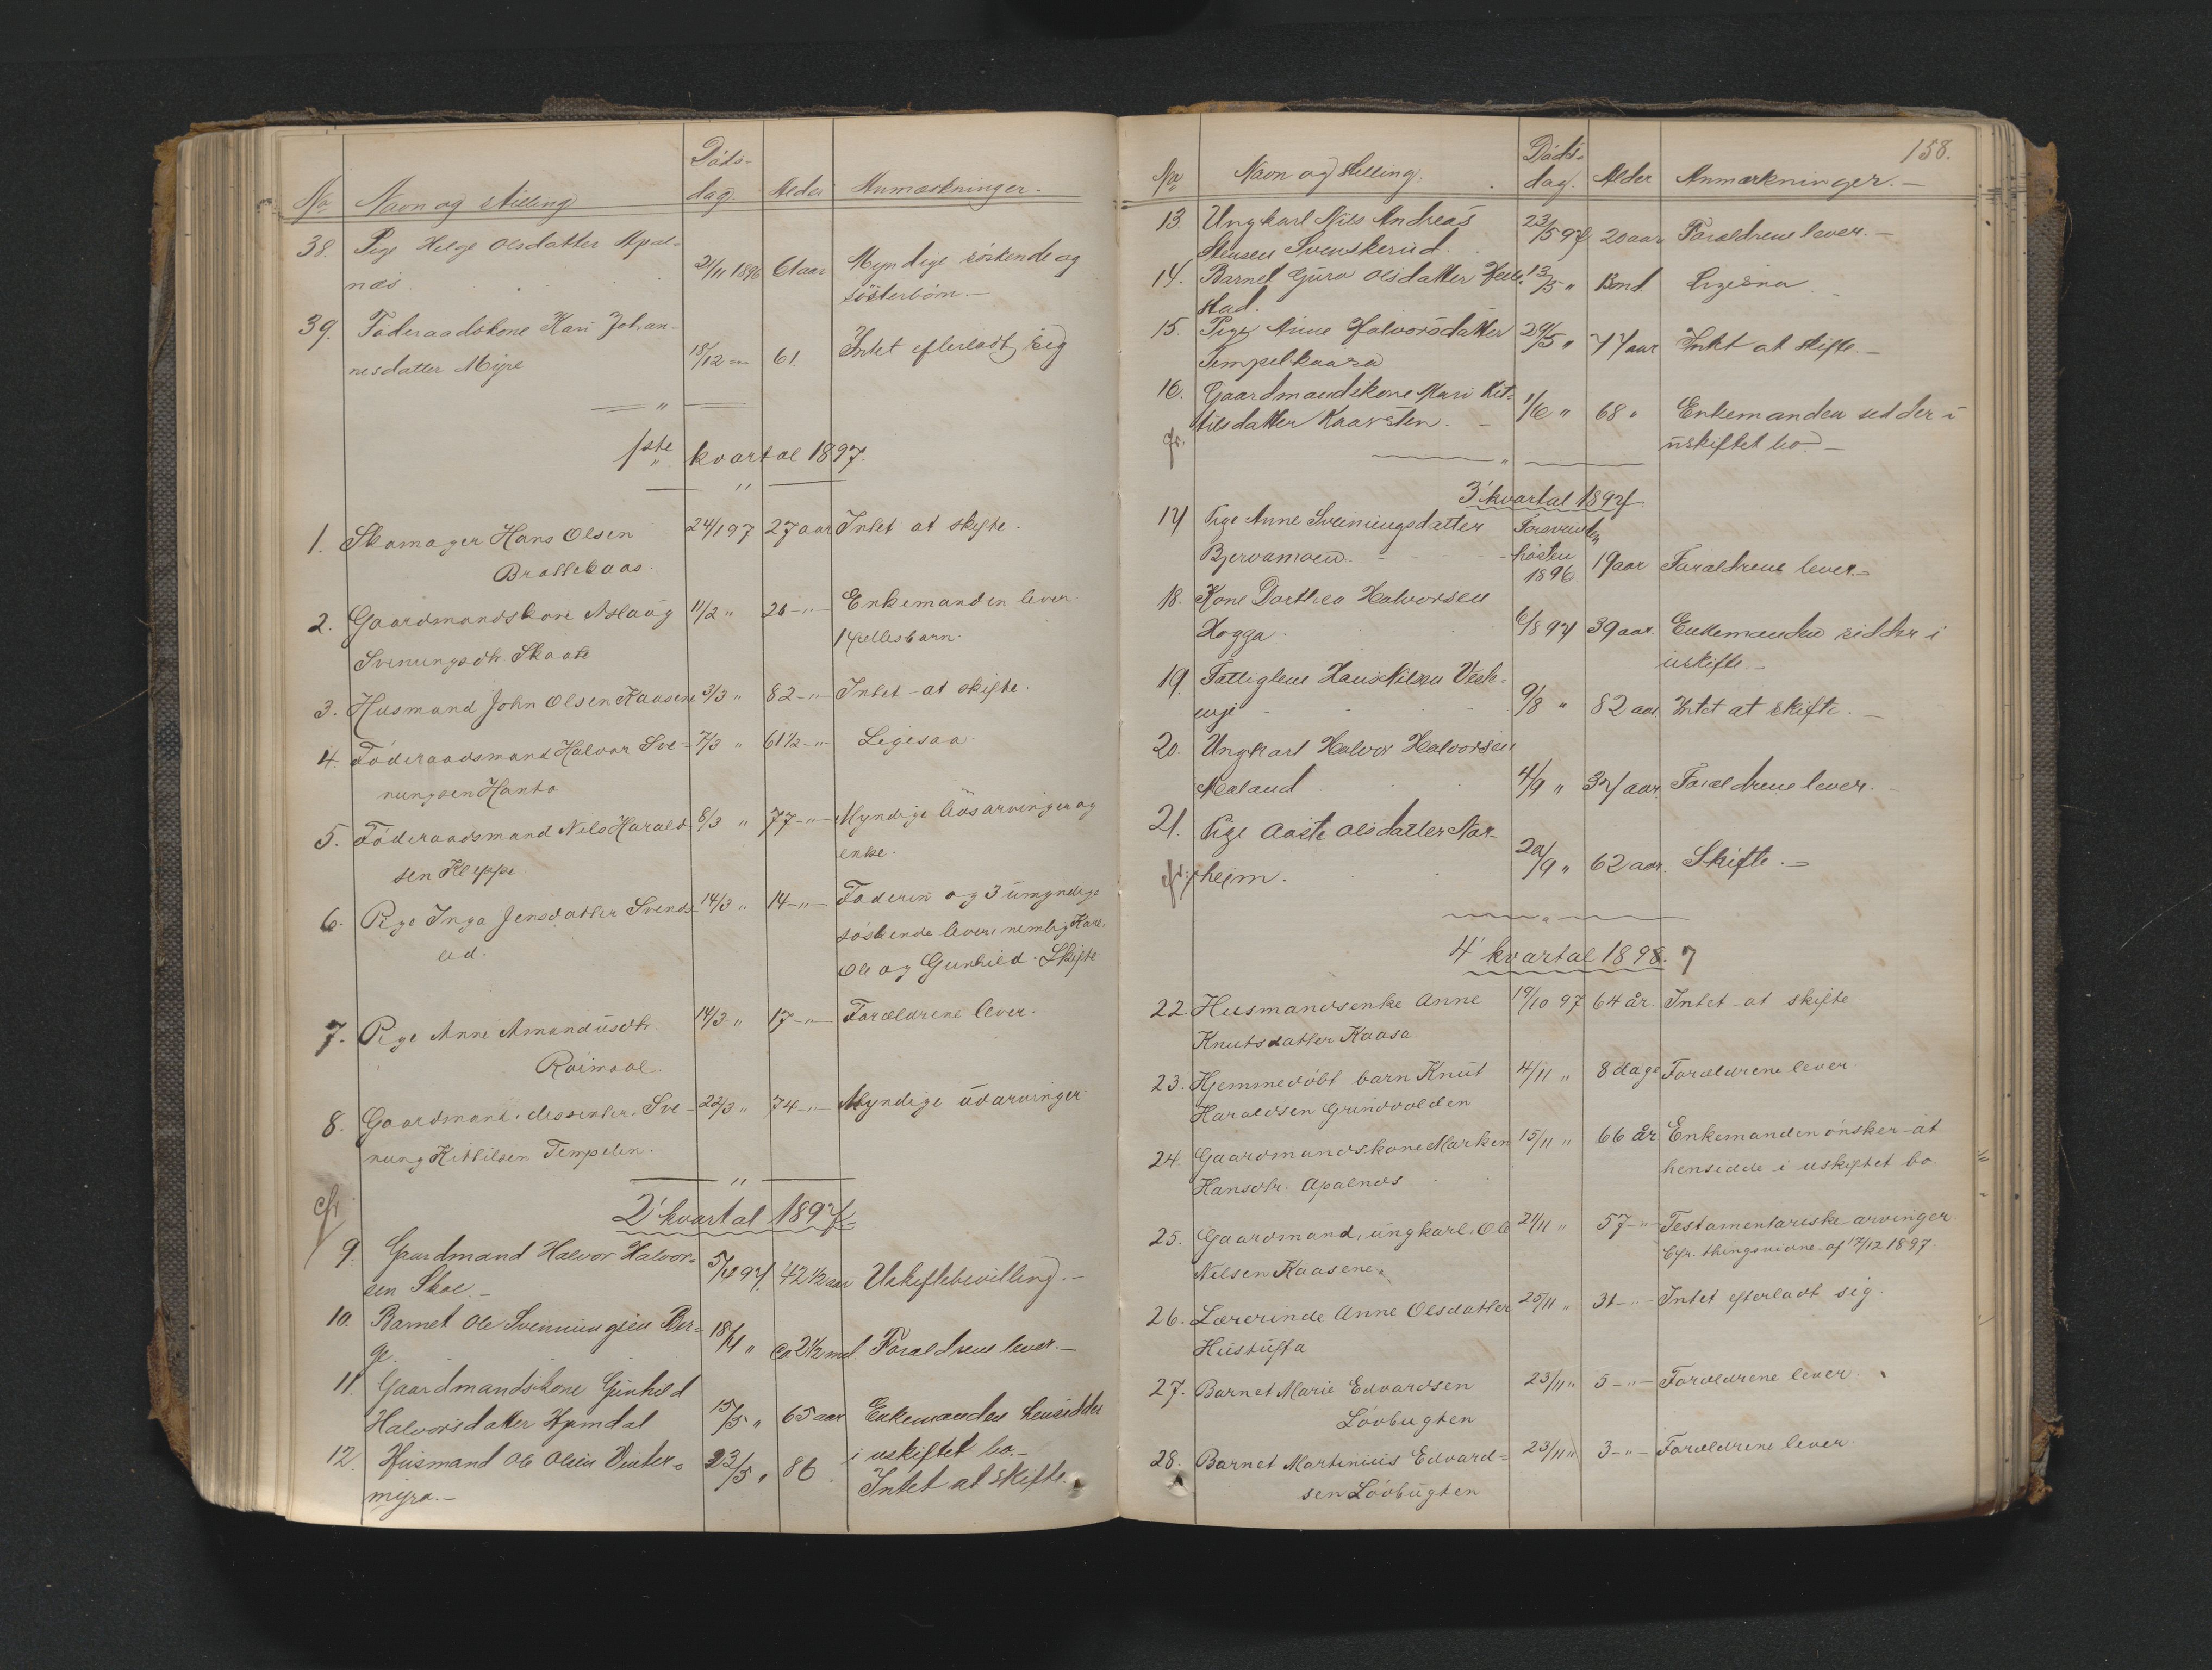 No Navn og stilling Döds-dag. Alder Anmærkninger.
38. Pige Helge Olsdatter Apal-
næs. 21/11 1896 61 aar Myndige söskende og
sösterbörn.-
39. Föderaadskone Kari Johan-
nesdatter Myre 18/12 " 61. Intet efterladt sig
1ste kvartal 1897.
1. Skomager Hans Olsen 24/1 97 27 aar Intet at skifte.
Brattekaas.
2. Gaardmandskone Aslaug 11/2 " 26 -"- Enkemanden lever.
Svenungsdtr. Skaate 1 fællesbarn.
3. Husmand John Olsen Kaasene 3/3 " 82 -"- Intet at skifte.
4. Föderaadsmand Halvor Sve- 7/3 " 61 1/2 -"- Ligesaa.
nungsen Hanto
5. Föderaadsmand Nils Harald- 8/3 " 77 -"- Myndige livsarvinger og
sen Kleppe enke.
6. Pige Inga Jensdatter Svends- 14/3 " 14 -"- Faderen og 3 umyndige
eid. söskende lever, nemlig Kari,
Ole og Gunhild. Skifte
7. Pige Anne Amandusdtr. 14/3 " 17 -"- Forældrene lever.
Roimaal.
8. Gaardmand, dissenter, Sve- 22/3 " 74 -"- Myndige udarvinger
nung Kittilsen Tempelen.
cfr
2' kvartal 1897
9. Gaardmand Halvor Halvor-
sen Skoe.- 5/4 97. 42 1/2 aar Uskiftebevilling.-
10. Barnet Ole Svenningsen Ber-
ge. 18/4 " ca 2 1/2 md. Forældrene lever.-
11. Gaardmandskone Gunhild
Halvorsdatter Hjemdal 15/5 " 65 aar Enkemanden hensidder
i uskiftet bo.-
12. Husmand Ole Olsen Vinter-
myra.- 23/5 " 86. Intet at skifte.
158.
No Navn og stilling. Döds-dag. Alder Anmærkninger.-
13. Ungkarl Nils Andreas 23/5 97 20 aar Forældrene lever.-
Stensen Svenskerud.
14. Barnet Guro Olsdatter 13/5 " 13 md. Ligesaa
stad.
15. Pige Anne Halvorsdatter 29/5 " 77 aar Intet at skifte.-
Tempelkaasa
16. Gaardmandskone Mari Kit-
tilsdatter Kaarsten.- 1/6 " 68 " Enkemanden sidder i
uskiftet bo.-
cfr.
3' kvartal 1897
17 Pige Anne Svenningsdatter Forsvandt
Bjervamoen. hösten
1896 19 aar Forældrene lever.-
18. Kone Dorthea Halvorsen
Hogga. 6/8 97 39 aar. Enkemanden sidder i
uskifte.-
19. Fattiglem Hans Nilsen Vesle-
enge 9/8 " 82 aar Intet at skifte.-
20. Ungkarl Halvor Halvorsen
Mæland 4/9 " 37 aar. Forældrene lever.-
21. Pige Aaste Olsdatter Nor-
heim. 29/9 " 62 aar. Skifte.-
cfr.
4' kvartal 1898. 7
22. Husmandsenke Anne 19/10 97 64 år. Intet at skifte
Knutsdatter Kaasa.
23. Hjemmedöbt barn Knut 4/11 " 8 dage Forældrene lever.
Haraldsen Grindvolden
24. Gaardmandskone Marken 15/11 " 66 år Enkemanden önsker at
Hansdtr. Apalnæs hensidde i uskiftet bo.
25. Gaardmand, ungkarl, Ole 21/11 " 57 -"- Testamentariske arvinger.
Nilsen Kaasene. Cfr. thingsvidne af 17/12 1897.
26. Lærerinde Anne Olsdatter 25/11 " 31 -"- Intet efterladt sig.
Hustufta
27. Barnet Marie Edvardsen 23/11 " 5 -"- Forældrene lever.
Lövbugten
28. Barnet Martinius Edvard- 23/11 " 3 -"- Forældrene lever.
sen Lövbugten